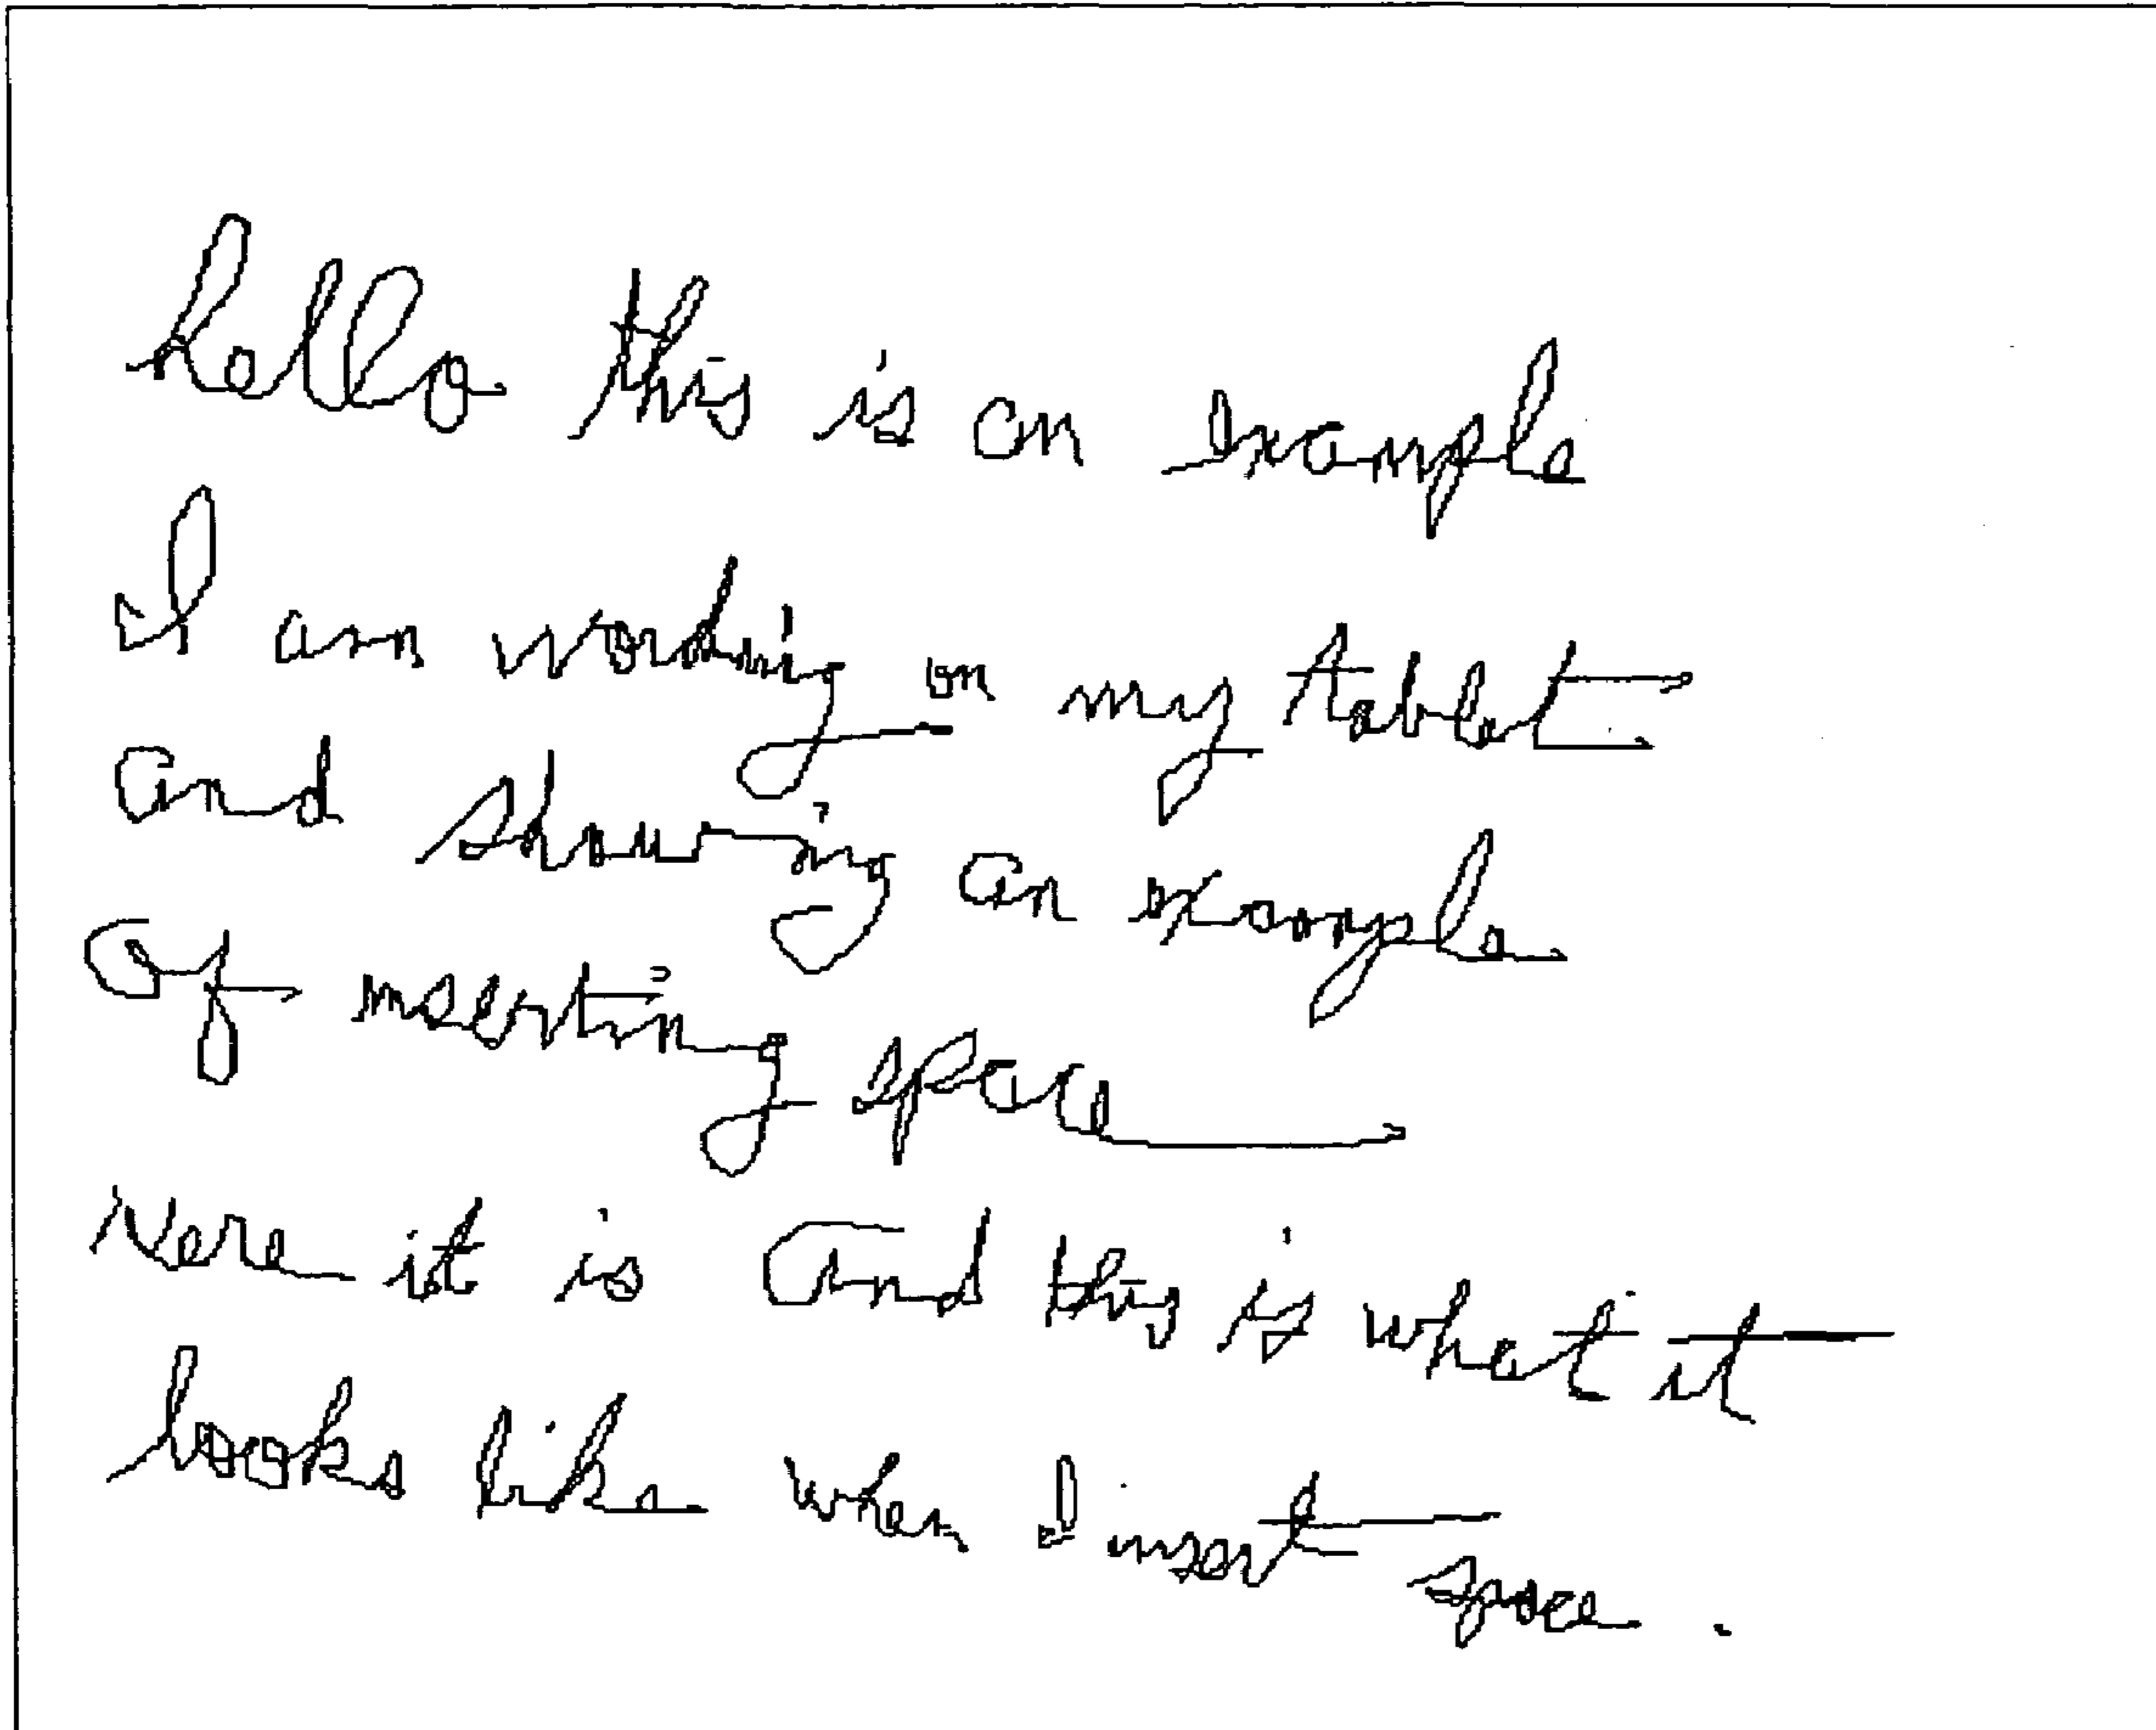 hello this is an example
I am working on my tablet
and showing an example
of inserting space
Here it is and this is what it
looks like when I insert space.